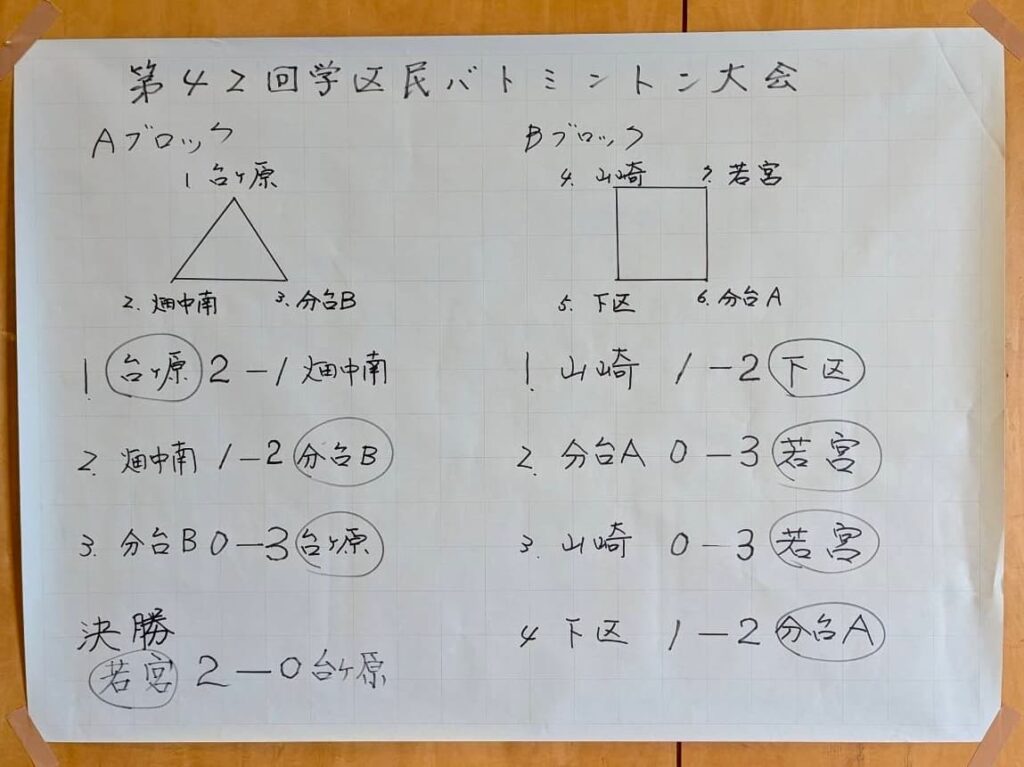 第42回学区民バトミントン大会
Aブロック
1 台ヶ原
2. 畑中南
3. 分台B
1. 台ヶ原 2-1 畑中南
2. 畑中南 1-2 分台B
3. 分台B 0-3 台ヶ原
決勝
若宮 2-0 台ヶ原
Bブロック
4. 山崎
7. 若宮
5. 下区
6. 分台A
1. 山崎 1-2 下区
2. 分台A 0-3 若宮
3. 山崎 0-3 若宮
4 下区 1-2 分台A